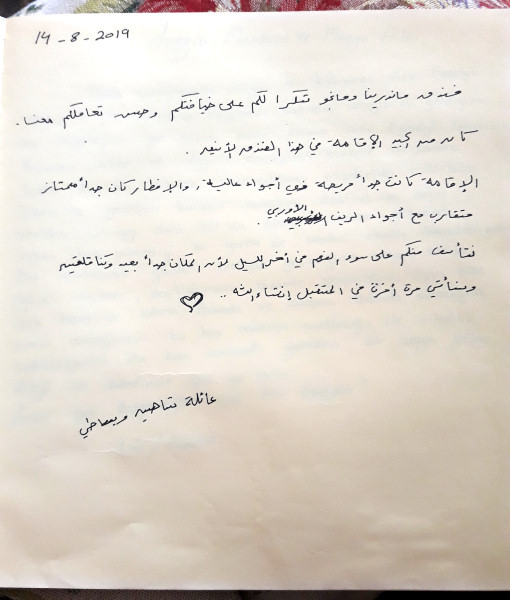 14-8-2019
فندق ماندرينا ومانجو شكرا لكم على ضيافتكم وحسن تعاملكم معنا.
كان من الجيد الإقامة في هذا الفندق الأنيق.
الإقامة كانت جداً مريحة في أجواء عالية، والافطار كان جداً ممتاز
متقارب مع أجواء الريف الأوربي.
نتأسف منكم على سوء الفهم في أخر الليل لأن المكان جداً بعيد وكنا قلقين
وسنأتي مرة أخرى في المتقبل إنشاء الله ..
عائلة شاهين